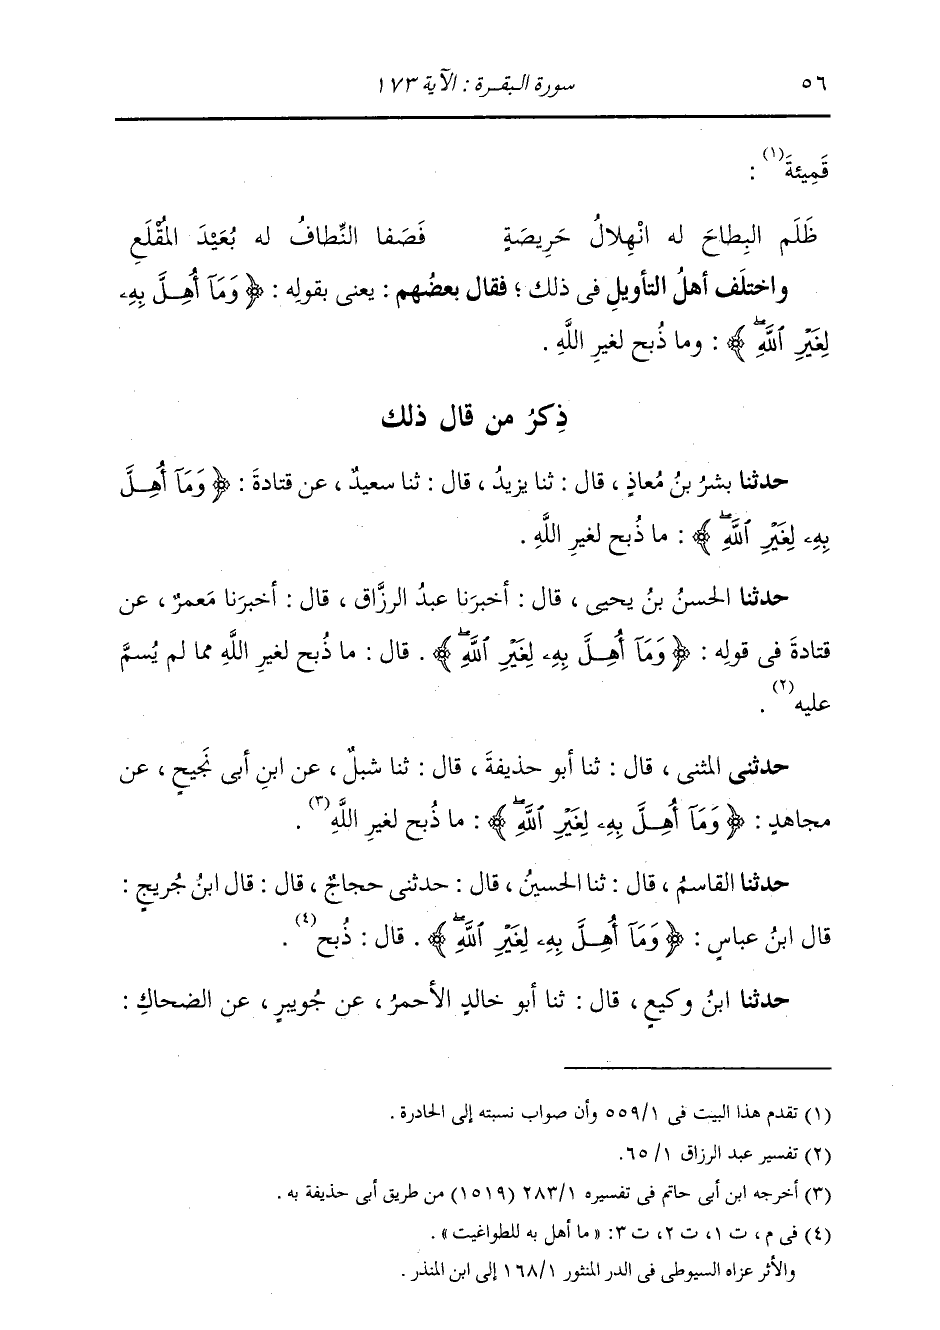 ٥٦ سورة البقرة : الآية ١٧٣
قَمِيئةَ(١) :
ظَلَم البِطاحَ له انْهِلالُ حَرِيصَةٍ فَصَفا النِّطافُ له بُعَيْدَ المُقْلَعِ
واختلَف أهلُ التأويلِ فى ذلك ؛ فقال بعضُهم : يعنى بقولِه : ﴿ وَمَآ أُهِلَّ بِهِۦ
لِغَيْرِ ٱللَّهِۖ ﴾ : وما ذُبح لغيرِ اللَّهِ .
ذِكرُ من قال ذلك
حدثنا بشرُ بنُ مُعاذٍ ، قال : ثنا يزيدُ ، قال : ثنا سعيدٌ ، عن قتادةَ : ﴿ وَمَآ أُهِلَّ
بِهِۦ لِغَيْرِ ٱللَّهِۖ ﴾ : ما ذُبح لغيرِ اللَّهِ .
حدثنا الحسنُ بنُ يحيى ، قال : أخبرَنا عبدُ الرزَّاق ، قال : أخبرَنا مَعمرٌ ، عن
قتادةَ فى قولِه : ﴿ وَمَآ أُهِلَّ بِهِۦ لِغَيْرِ ٱللَّهِۖ ﴾ . قال : ما ذُبح لغيرِ اللَّهِ مما لم يُسمَّ
عليه(٢) .
حدثنى المثنى ، قال : ثنا أبو حذيفةَ ، قال : ثنا شبلٌ ، عن ابنِ أبى نَجيحٍ ، عن
مجاهدٍ : ﴿ وَمَآ أُهِلَّ بِهِۦ لِغَيْرِ ٱللَّهِۖ ﴾ : ما ذُبح لغيرِ اللَّهِ(٣) .
حدثنا القاسمُ ، قال : ثنا الحسينُ ، قال : حدثنى حجاجٌ ، قال : قال ابنُ جُريجٍ :
قال ابنُ عباسٍ : ﴿ وَمَآ أُهِلَّ بِهِۦ لِغَيْرِ ٱللَّهِۖ ﴾ . قال : ذُبح(٤) .
حدثنا ابنُ وكيعٍ ، قال : ثنا أبو خالدٍ الأحمرُ ، عن جُويبرٍ ، عن الضحاكِ :
(١) تقدم هذا البيت فى ١/٥٥٩ وأن صواب نسبته إلى الحادرة .
(٢) تفسير عبد الرزاق ١/ ٦٥.
(٣) أخرجه ابن أبى حاتم فى تفسيره ١/٢٨٣ (١٥١٩) من طريق أبى حذيفة به .
(٤) فى م ، ت ١، ت ٢، ت ٣: « ما أهل به للطواغيت » .
والأثر عزاه السيوطى فى الدر المنثور ١/١٦٨ إلى ابن المنذر .